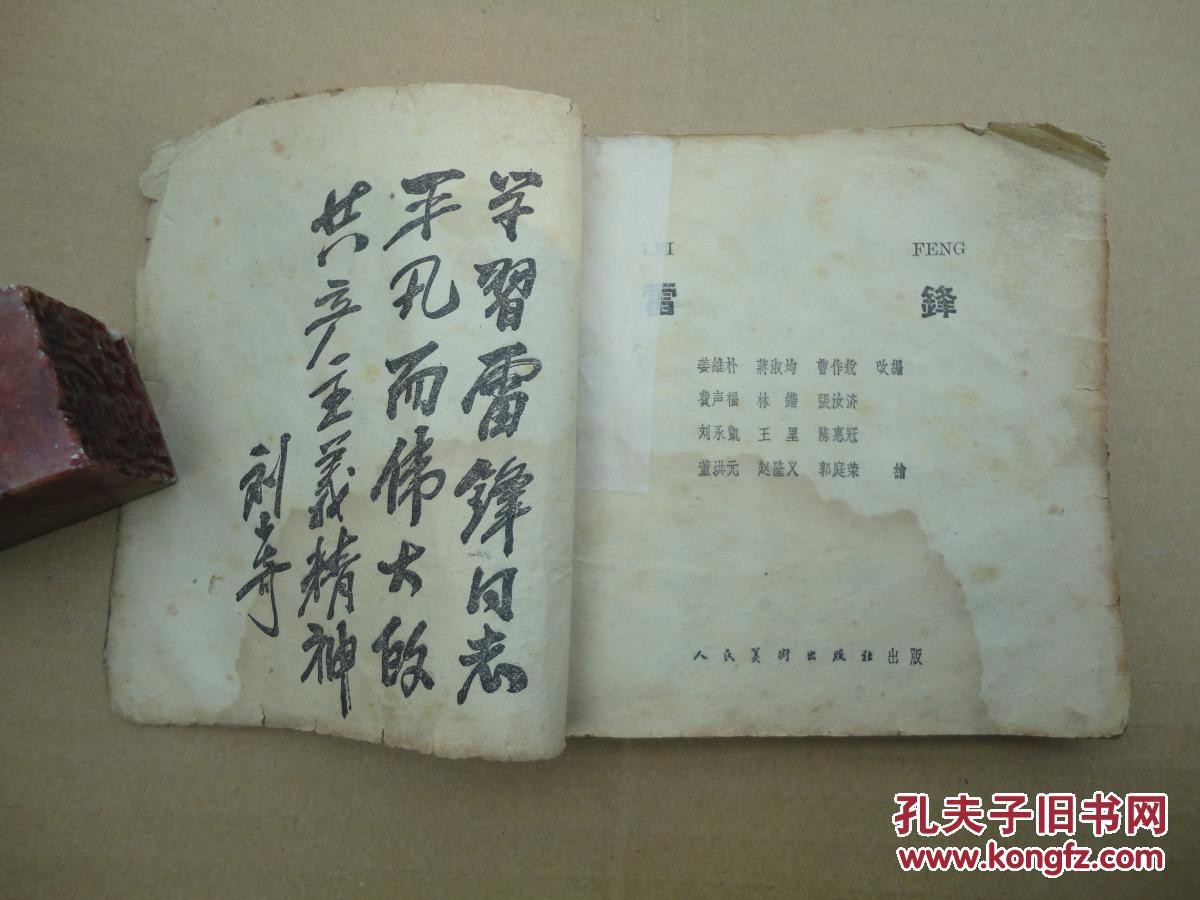 学習雷锋同志
平凡而偉大的
共产主義精神
刘少奇
LEI FENG
雷 鋒
姜維朴 蔣淑均 曹作銳 改編
費声福 林鍇 張汝济
刘永凱 王里 陈惠冠
董洪元 赵隆义 郭庭荣 繪
人民美術出版社出版
孔夫子旧书网
www.kongfz.com